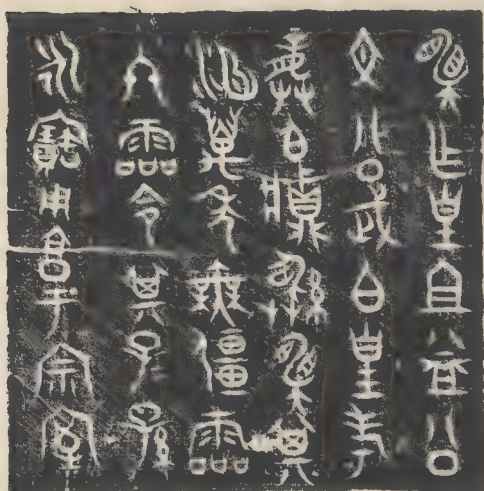 乍皇且益公
文公武白皇考
龏白𩰬彝其
洀萬年無疆霝
冬霝令其子孫
永寶用享于宗室